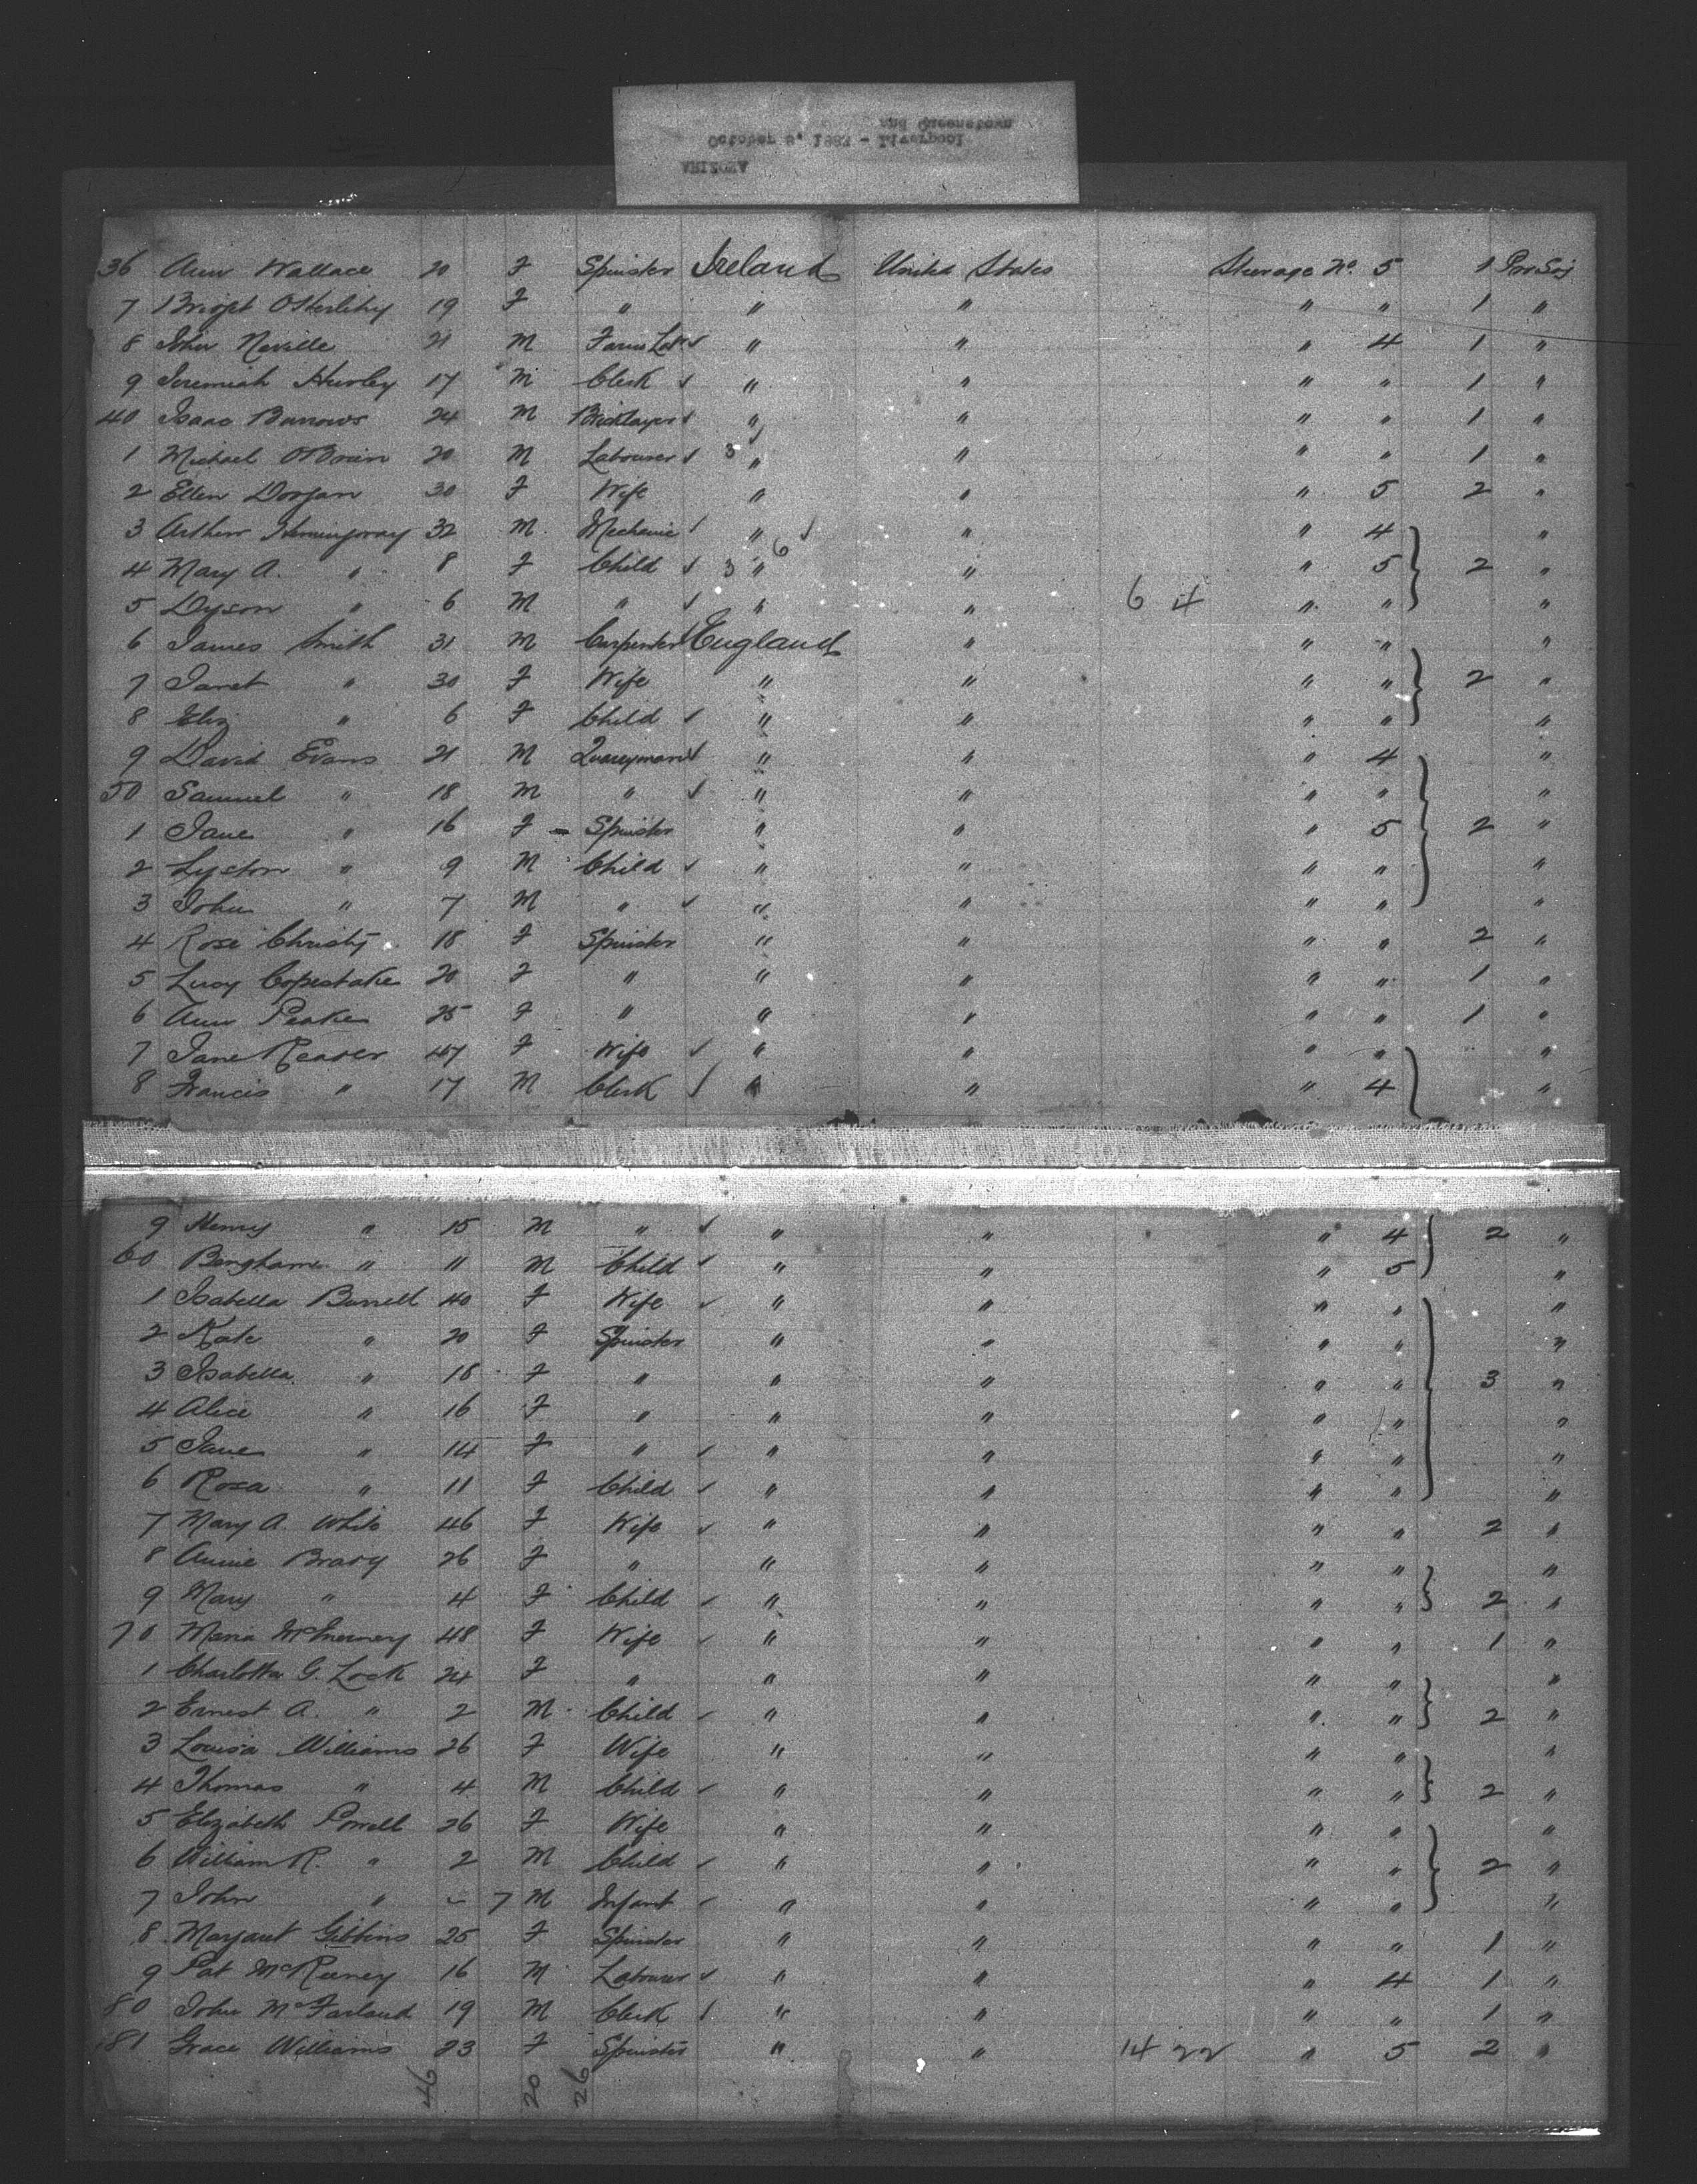 ARIZONA
October 8, 1887 - Liverpool
and Queenstown
36 Ann Wallace 20 F Spinster Ireland United States Steerage No. 5 1
7 19 F " " " " " 1 "
8 John Neville 21 M Farm Lab " " " 4 1 "
9 Jeremiah Hurley 17 M Clerk " " " " 1 "
40 Isaac Burrows 24 M Bricklayer " " " " 1 "
1 Michael O'Brien 20 M Labourer 3 " " " " 1 "
2 Ellen Dorgan 30 F Wife " " " 5 2 "
3 Arthur Hemingway 32 M Mechanic " " " 4 "
6
4 Mary A. " 8 F Child 3 " " " 5 2 "
5 Dyson " 6 M " " " 6 4 " " "
6 James Smith 31 M Carpenter England " " " "
7 Janet " 30 F Wife " " " " 2 "
8 Eliz " 6 F Child " " " " "
9 David Evans 21 M Quarryman " " " 4 "
50 Samuel " 18 M " " " " " "
1 Jane " 16 F Spinster " " " 5 2 "
2 Lyston " 9 M Child " " " " "
3 John " 7 M " " " " " "
4 Rose Christy 18 F Spinster " " " " 2 "
5 Lucy Copestake 20 F " " " " " 1 "
6 Ann Peake 25 F " " " " " 1 "
7 Jane Reader 47 F Wife " " " " "
8 Francis " 17 M Clerk " " " 4 "
9 Henry " 15 M " " " " 4 2 "
60 Bengham " " M Child " " " 5 "
1 Isabella Burrell 40 F Wife " " " " "
2 Kate " 20 F Spinster " " " " "
3 Isabella " 18 F " " " " " 3 "
4 Alice " 16 F " " " " " "
5 Jane " 14 F " " " " " "
6 Rosa " 11 F Child " " " " "
7 Mary A. White 46 F Wife " " " " 2 "
8 Annie Brady 26 F " " " " " "
9 Mary " 4 F Child " " " " 2 "
70 Maria McInerney 48 F Wife " " " " 1 "
1 Charlotta G. Lock 24 F " " " " " "
2 Ernest A. " 2 M Child " " " " 2 "
3 Louisa Williams 26 F Wife " " " " "
4 Thomas " 4 M Child " " " " 2 "
5 Elizabeth Powell 26 F Wife " " " " "
6 William R. " 2 M Child " " " " 2 "
7 John " - 7 M Infant " " " " "
8 Margaret Gibbins 25 F Spinster " " " " 1 "
9 Pat 16 M Labourer " " " 4 1 "
80 John McFarland 19 M Clerk " " " " 1 "
81 Grace Williams 23 F Spinster " " 14 22 " 5 2 "
46 20 26